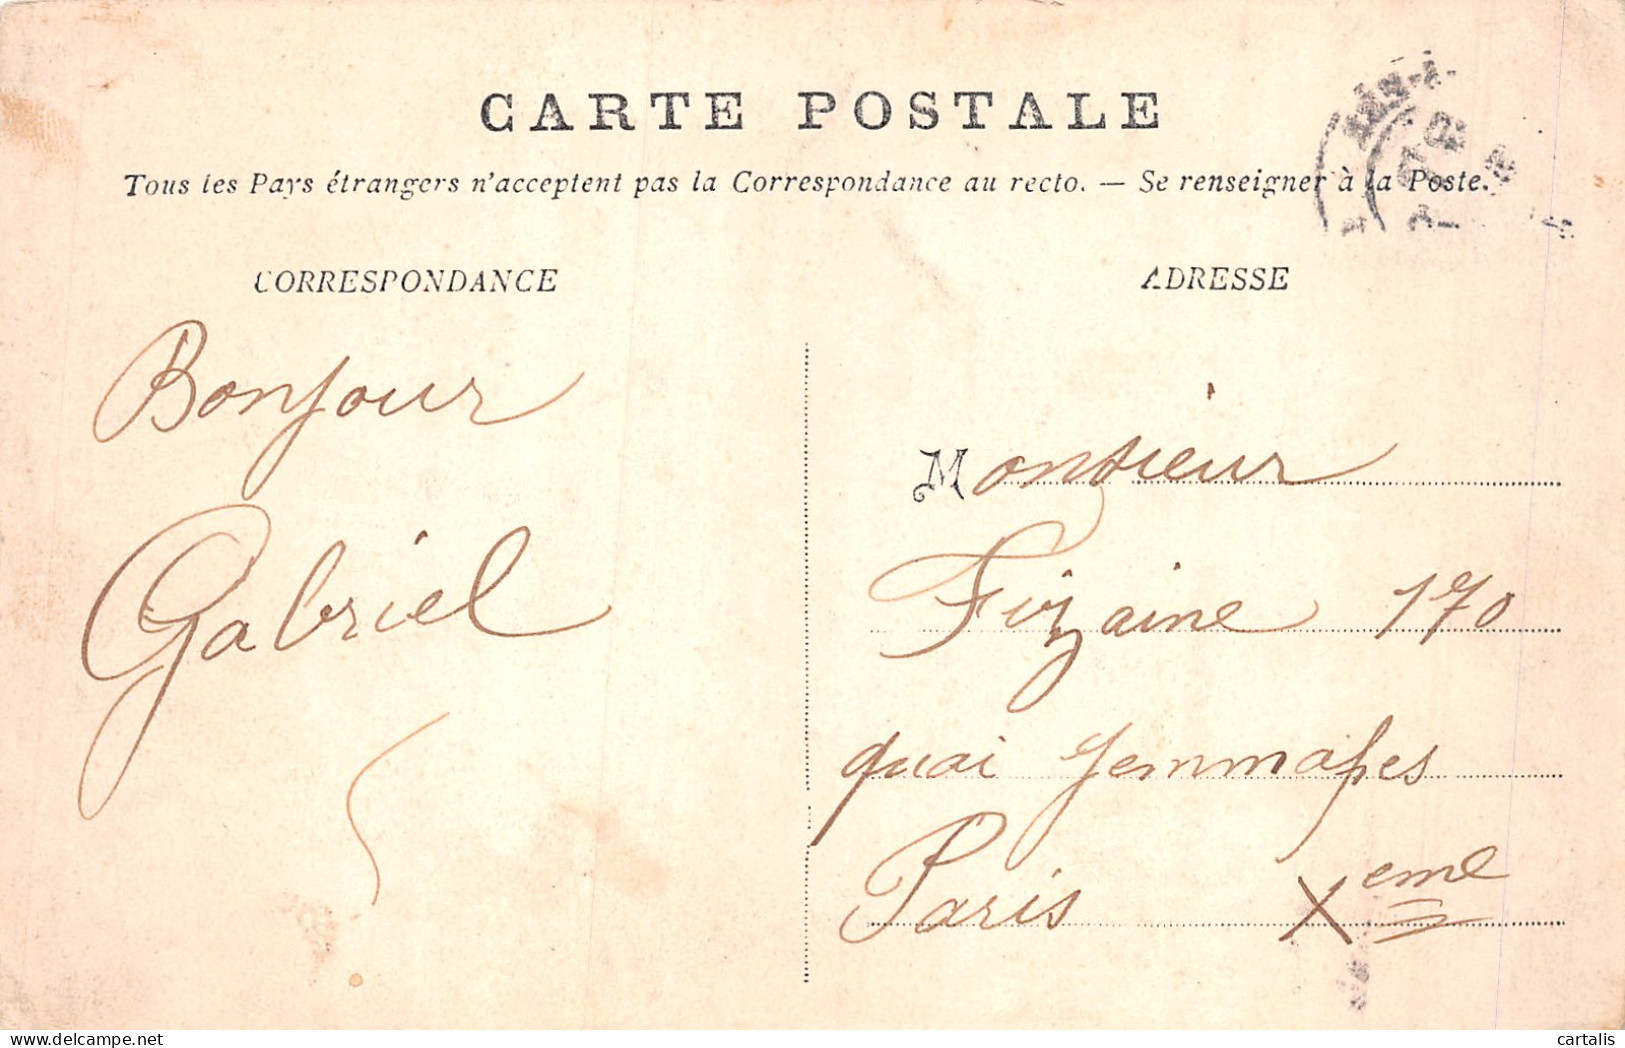 CARTE POSTALE
Tous les Pays étrangers n'acceptent pas la Correspondance au recto. — Se renseigner à la Poste.
CORRESPONDANCE
ADRESSE
Bonjour
Gabriel
Monsieur
Fizaine 170
quai Jemmapes
Paris Xeme
cartalis